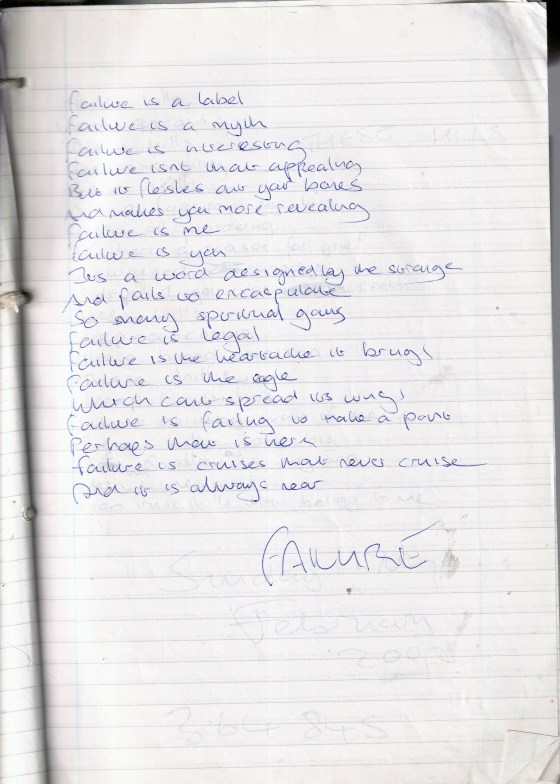 Failure is a label
Failure is a myth
Failure is interesting
Failure isnt that appealing
But it fleshes out your bones
And makes you more revealing
Failure is me
Failure is you
Its a word designed by the strange
And fails to encapsulate
So many spiritual gains
Failure is legal
Failure is the heartache it brings
Failure is the eagle
Which cant spread its wings
Failure is failing to make a point
Perhaps that is here
Failure is cruises that never cruise
And it is always near
FAILURE